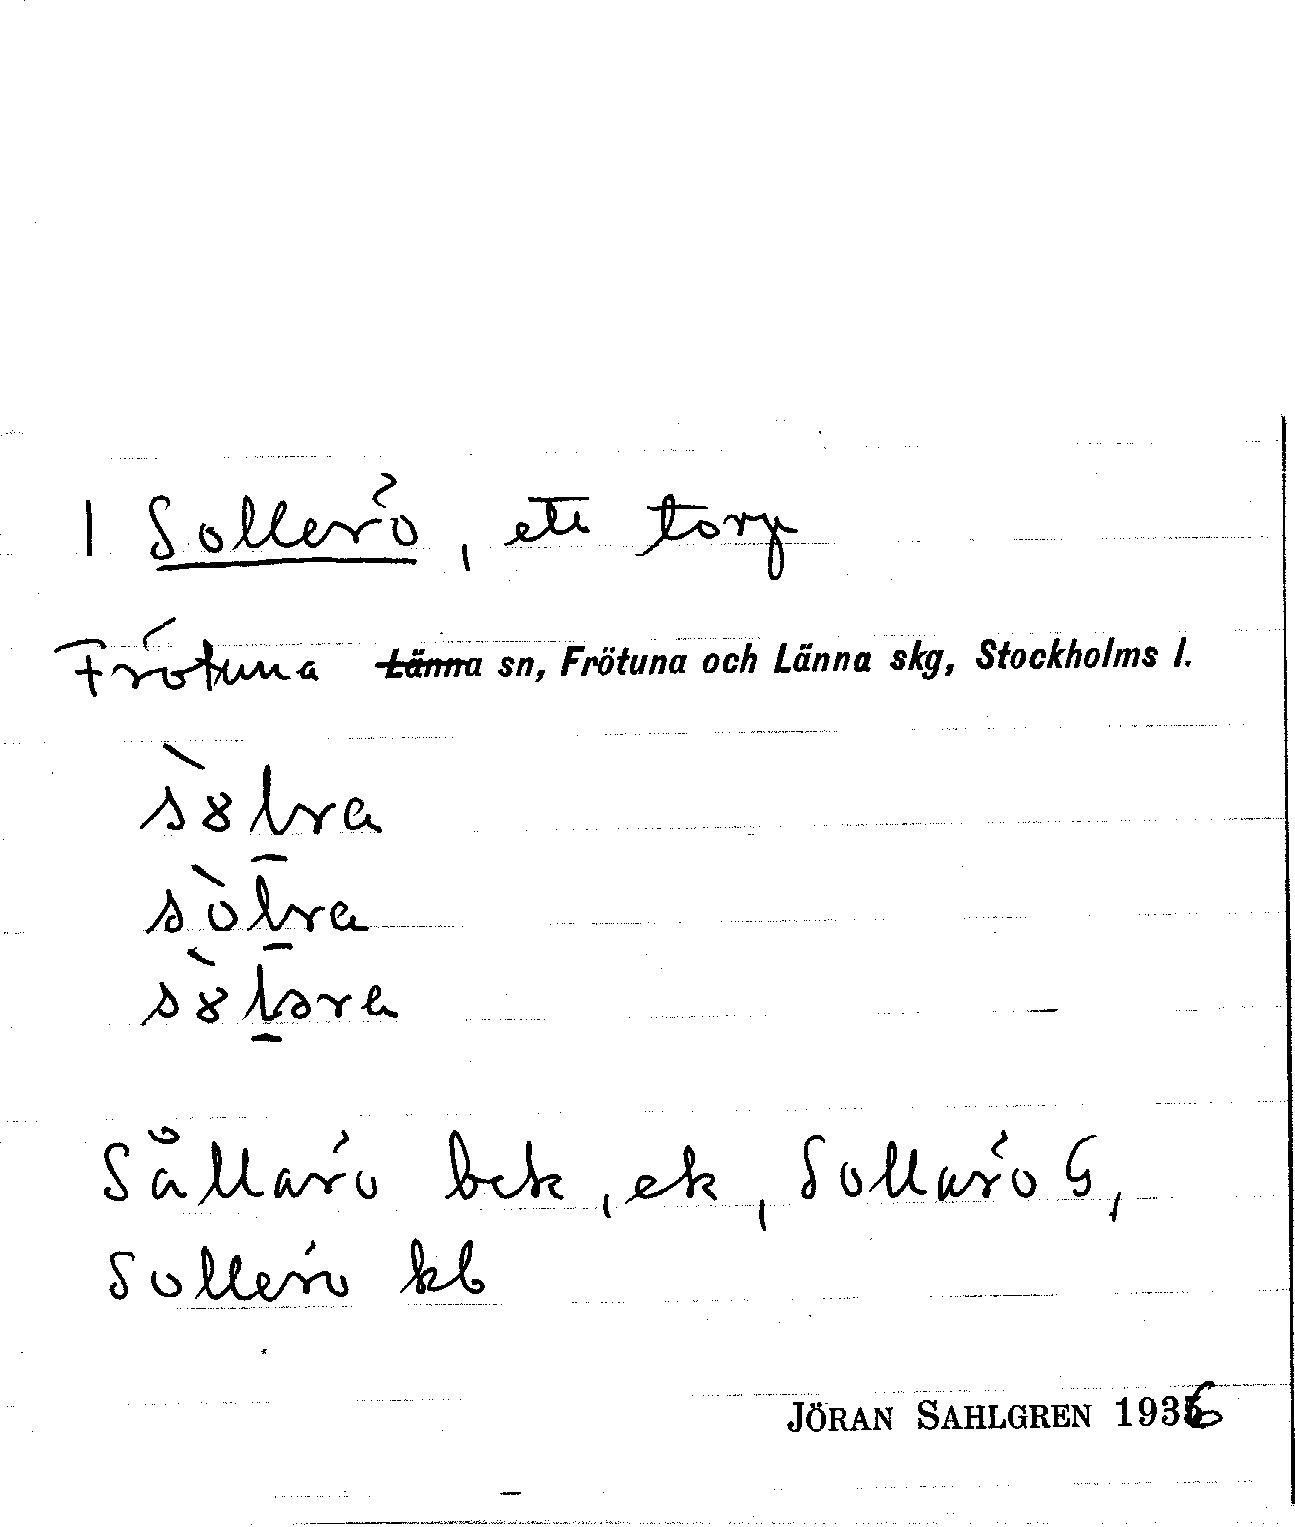 1 Sollerö, ett torp
Frötuna Länna sn, Frötuna och Länna skg, Stockholms l.
sò̀lra
sòlra
Sållarö bek, ek, Sollarö G,
Sollerö kb
JÖRAN SAHLGREN 1936